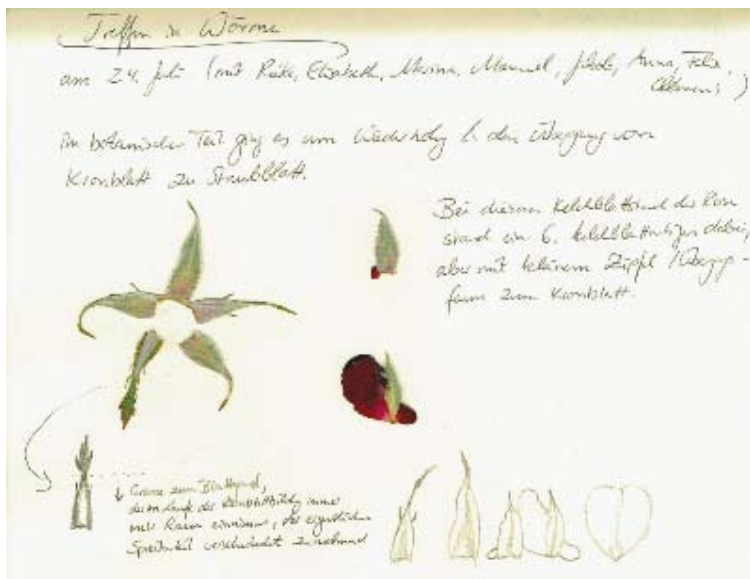 Treffen in Wörme
am 24. Juli (mit Rieke, Elisabeth, Merina, Manuel, Jakob, Anna, Felix,
Clemens)
Im botanischen Teil ging es um Wiederholg & den Übergang vom
Kronblatt zu Staubblatt.
Bei diesem Kelchblattkreis der Rose
stand ein 6. kelchblattartiges dabei,
aber mit kleinem Zipfel / Übergangs-
form zum Kronblatt.
↓ Grenze zum Blattgrund,
der im Laufe der Kronblattbildg immer
mehr Raum einnimmt, der eigentliche
zunehmend